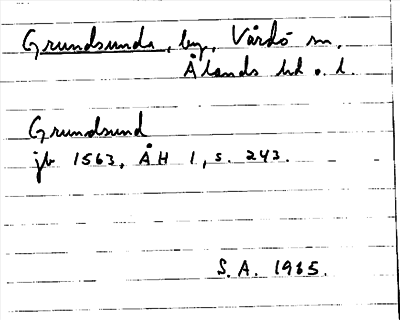 Grundsunda, by, Vårdö sn,
Ålands hd o. l.
Grundsund
jb 1563, ÅH 1, s. 243.
S. A. 1965.